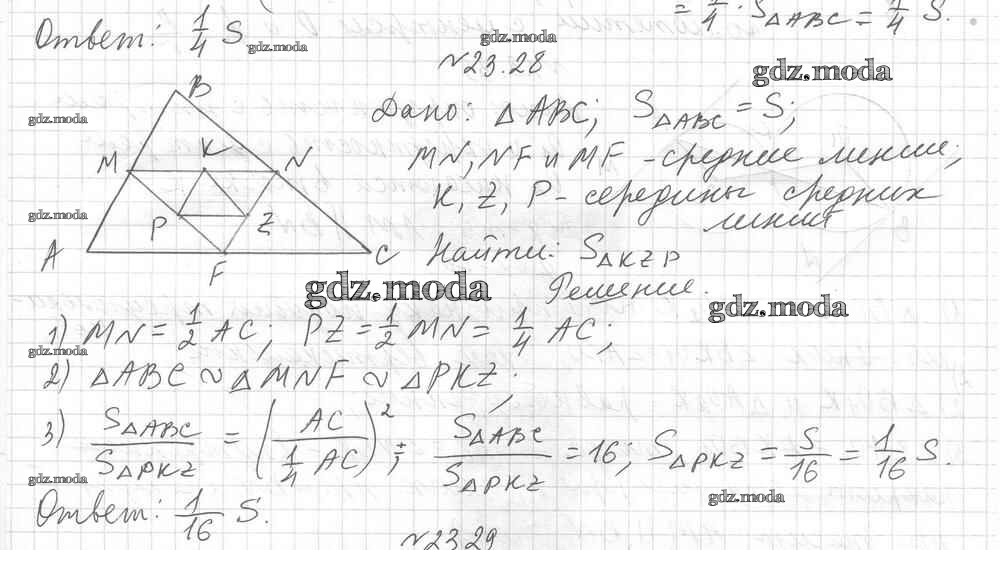 = 1/4 · S△ABC = 1/4 S.
Ответ: 1/4 S.
gdz.moda
gdz.moda
N23.28
gdz.moda
gdz.moda
B
M
K
N
P
Z
A
F
C
Дано: △ABC; S△ABC = S;
MN, NF и MF - средние линии;
K, Z, P - середины средних
линий
gdz.moda
Найти: S△KZP
Решение.
gdz.moda
gdz.moda
1) MN = 1/2 AC; PZ = 1/2 MN = 1/4 AC;
gdz.moda
2) △ABC ~ △MNF ~ △PKZ;
3) S△ABC / S△PKZ = (AC / 1/4 AC)²; S△ABC / S△PKZ = 16; S△PKZ = S/16 = 1/16 S.
gdz.moda
gdz.moda
Ответ: 1/16 S.
N23.29